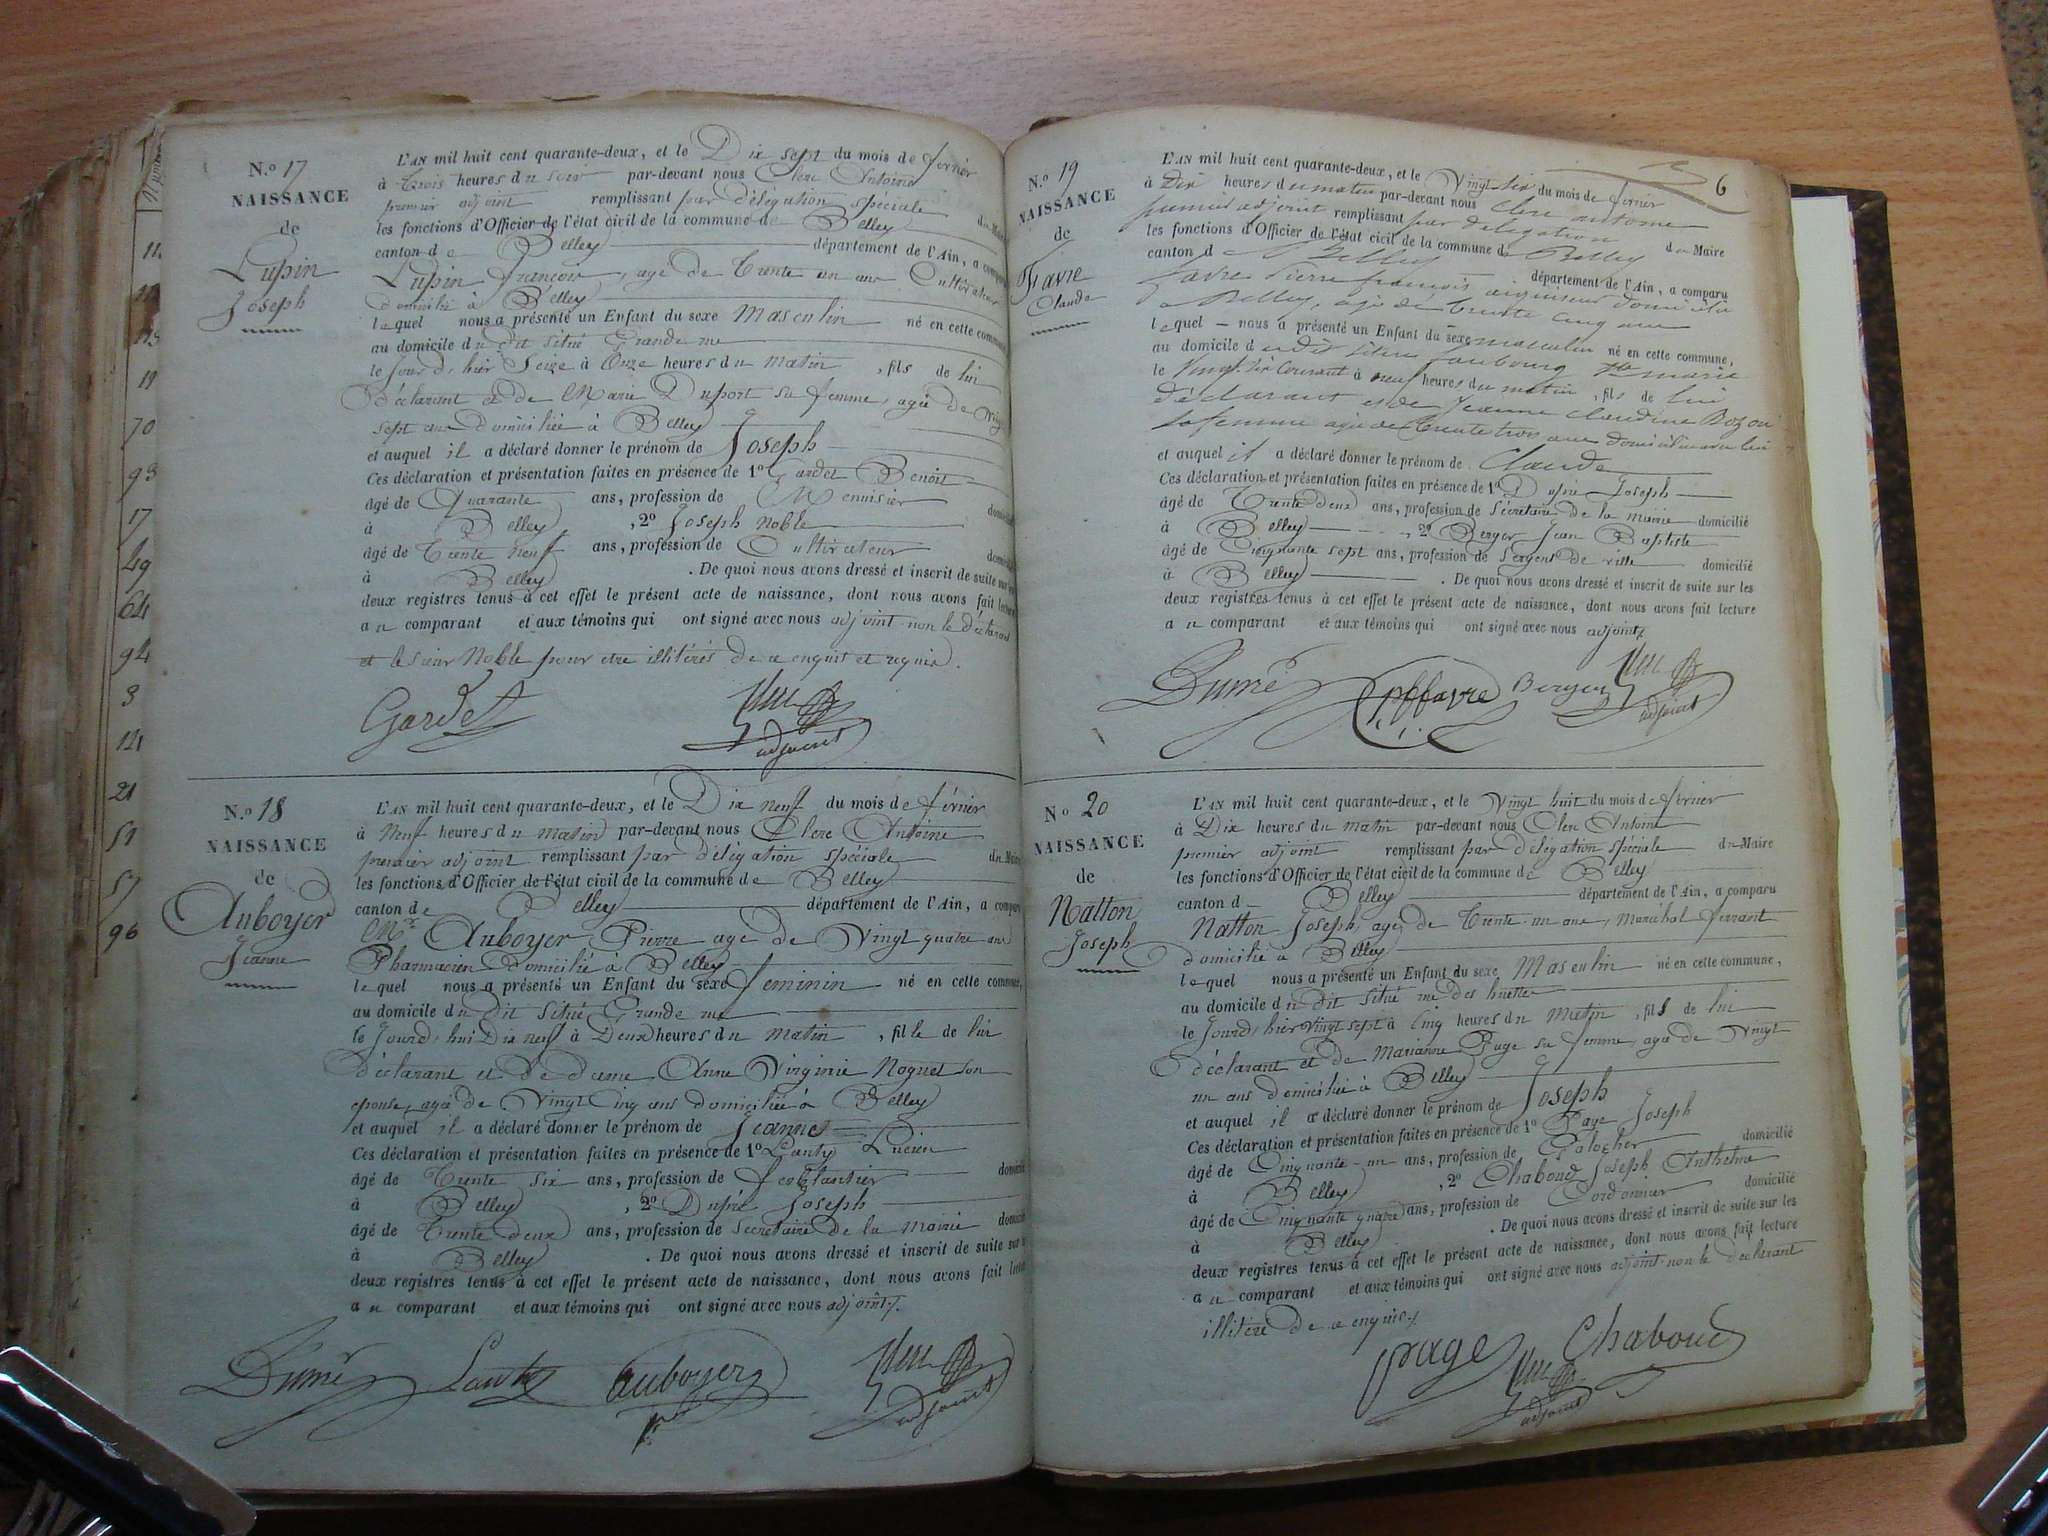 N.o 17
NAISSANCE
de
Lupin
Joseph
L'AN mil huit cent quarante-deux, et le Dix sept du mois de fevrier
à trois heures du soir par-devant nous Clerc Antoine
premier adjoint remplissant par délégation spéciale du Maire
les fonctions d'Officier de l'état civil de la commune de Belley
canton de Belley département de l'Ain, a comparu
Lupin françois, agé de Trente un ans Cultivateur
domicilié à Belley
lequel nous a présenté un Enfant du sexe Masculin né en cette commune
au domicile du dit situé Grande rue
le Jourd, hier Seize à Onze heures du matin, fils de lui
déclarant et de Marie Duport sa femme, agée de Vingt
sept ans domiciliée à Belley
et auquel il a déclaré donner le prénom de Joseph
Ces déclaration et présentation faites en présence de 1o Gardet Benoit
âgé de Quarante ans, profession de Menuisier domicilié
à Belley, 2o Joseph Noble
âgé de Trente neuf ans, profession de Cultivateur domicilié
à Belley. De quoi nous avons dressé et inscrit de suite sur les
deux registres tenus à cet effet le présent acte de naissance, dont nous avons fait lecture
au comparant et aux témoins qui ont signé avec nous adjoint non le déclarant
et le sieur Noble pour etre illitérés de ce enquis et requis.
Gardet
adjoint
N.o 18
NAISSANCE
de
Auboyer
Jeanne
L'AN mil huit cent quarante-deux, et le Dix neuf du mois de février
à Neuf heures du matin par-devant nous Clerc Antoine
premier adjoint remplissant par délégation spéciale du Maire
les fonctions d'Officier de l'état civil de la commune de Belley
canton de Belley département de l'Ain, a comparu
Mr. Auboyer Pierre agé de Vingt quatre ans
Pharmacien domicilié à Belley
lequel nous a présenté un Enfant du sexe feminin né en cette commune,
au domicile du dit situé Grande rue
le Jourd, hui Dix neuf à Deux heures du matin, fille de lui
déclarant et de dame Anne Virginie Noguet son
epouse, agée de Vingt Cinq ans domiciliée à Belley
et auquel il a déclaré donner le prénom de Jeanne
Ces déclaration et présentation faites en présence de 1o Lanty Lucien
âgé de Trente six ans, profession de ferblantier domicilié
à Belley, 2o Dupré Joseph
âgé de Trente deux ans, profession de Secretaire de la Mairie domicilié
à Belley. De quoi nous avons dressé et inscrit de suite sur les
deux registres tenus à cet effet le présent acte de naissance, dont nous avons fait lecture
au comparant et aux témoins qui ont signé avec nous adjoint.
Lanty Auboyer
adjoint
6
N.o 19
NAISSANCE
de
Favre
Claude
L'AN mil huit cent quarante-deux, et le Vingt six du mois de fevrier
à Dix heures du matin par-devant nous Clerc antoine
premier adjoint remplissant par delegation du Maire
les fonctions d'Officier de l'état civil de la commune de Belley
canton de Belley département de l'Ain, a comparu
favre Pierre françois aiguiseur domicilié
a Belley, agé de trente cinq ans
lequel nous a présenté un Enfant du sexe masculin né en cette commune,
au domicile du dit situé faubourg Ste marie
le Vingt six Courant à neuf heures du matin, fils de lui
déclarant et de Jeanne Claudine Bozon
sa femme agée de trente trois ans domiciliée avec lui
et auquel il a déclaré donner le prénom de Claude
Ces déclaration et présentation faites en présence de 1o Dupré Joseph
âgé de Trente deux ans, profession de Sécretaire de la mairie domicilié
à Belley, 2o Berger Jean Baptiste
âgé de Cinquante sept ans, profession de Sergent de ville domicilié
à Belley. De quoi nous avons dressé et inscrit de suite sur les
deux registres tenus à cet effet le présent acte de naissance, dont nous avons fait lecture
au comparant et aux témoins qui ont signé avec nous adjoint
pffavre Berger
adjoint
No 20
NAISSANCE
de
Natton
Joseph
L'AN mil huit cent quarante-deux, et le Vingt huit du mois de février
à Dix heures du matin par-devant nous Clerc Antoine
premier adjoint remplissant par délégation spéciale du Maire
les fonctions d'Officier de l'état civil de la commune de Belley
canton d Belley département de l'Ain, a comparu
Natton Joseph, agé de Trente un ans, Maréchal ferrant
domicilié à Belley
lequel nous a présenté un Enfant du sexe Masculin né en cette commune,
au domicile du dit situé rue des
le Jourd, hier vingt sept à Cinq heures du Matin, fils de lui
déclarant et de Marianne Page sa femme, agée de Vingt
un ans domiciliée à Belley
et auquel il a déclaré donner le prénom de Joseph
Ces déclaration et présentation faites en présence de 1o Page Joseph
âgé de Cinquante un ans, profession de Galocher domicilié
à Belley, 2o Chaboud Joseph Anthelme
âgé de Cinquante quatre ans, profession de Cordonnier domicilié
à Belley. De quoi nous avons dressé et inscrit de suite sur les
deux registres tenus à cet effet le présent acte de naissance, dont nous avons fait lecture
au comparant et aux témoins qui ont signé avec nous adjoint non le déclarant
illitéré de ce enquis.
page Chaboud
adjoint
11
70
93
17
49
64
94
3
121
21
51
57
96